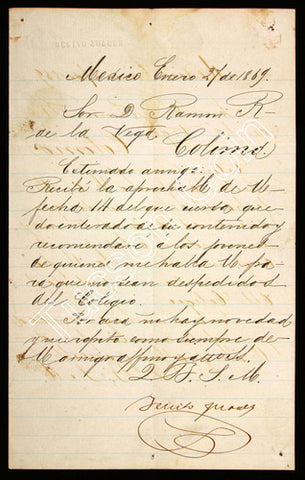 Mexico Enero 27 de 1869.
Sor. D. Ramon R.
de la Vega
Colima.
Estimado amigo:
Recibí la apreciable de U.
fecha 14 del que cursa que
do enterado de su contenido y
recomendaré a los jovenes
de quienes me habla U. pa
ra que no sean despedidos
del Colegio.
Por aca no hay novedad
y me repito como siempre de
U. amigo affmo y atto S.
Q. B. S. M.
Benito Juarez